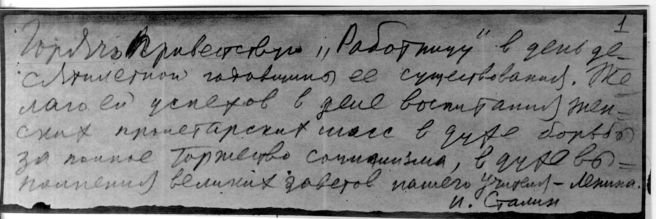 1
Горячо приветствую „Работницу" в день де-
сятилетней годовщины ее существования. Же
лаю ей успехов в деле воспитания жен-
ских пролетарских масс в духе борьбы
за полное торжество социализма, в духе вы=
полнения великих заветов нашего учителя – Ленина.
И. Сталин